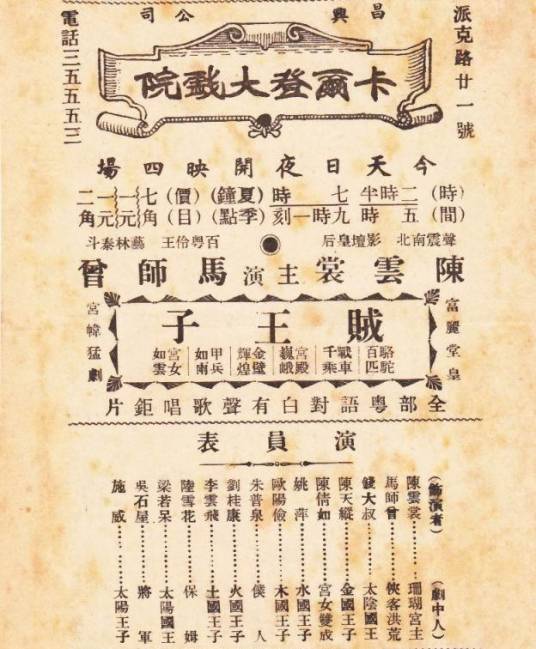 昌興公司
派克路廿一號
電話三五五五三
卡爾登大戲院
今天日夜開映四場
(時間) 二時半 五時 七時 九時一刻 (夏季鐘點) (價目) 七角 一元 一元二角
聲震南北 影壇皇后 百粵伶王 藝林泰斗
陳雲裳 主演 馬師曾
富麗堂皇
賊王子
駱駝百匹 戰車千乘 宮殿巍峨 金璧輝煌 甲兵如雨 宮女如雲
宮幃猛劇
全部粵語對白有聲歌唱鉅片
演員表
(飾演者) (劇中人)
陳雲裳……珊瑚宮主
馬師曾……俠客洪荒
錢大叔……太陰國王
陳天縱……金國王子
陳倩如……宮女雙成
姚萍……水國王子
歐陽儉……木國王子
朱普泉……僕人
劉桂康……火國王子
李雲飛……土國王子
陸雪花……保姆
梁若呆……太陽國王
吳石屋……將軍
施威……太陽王子